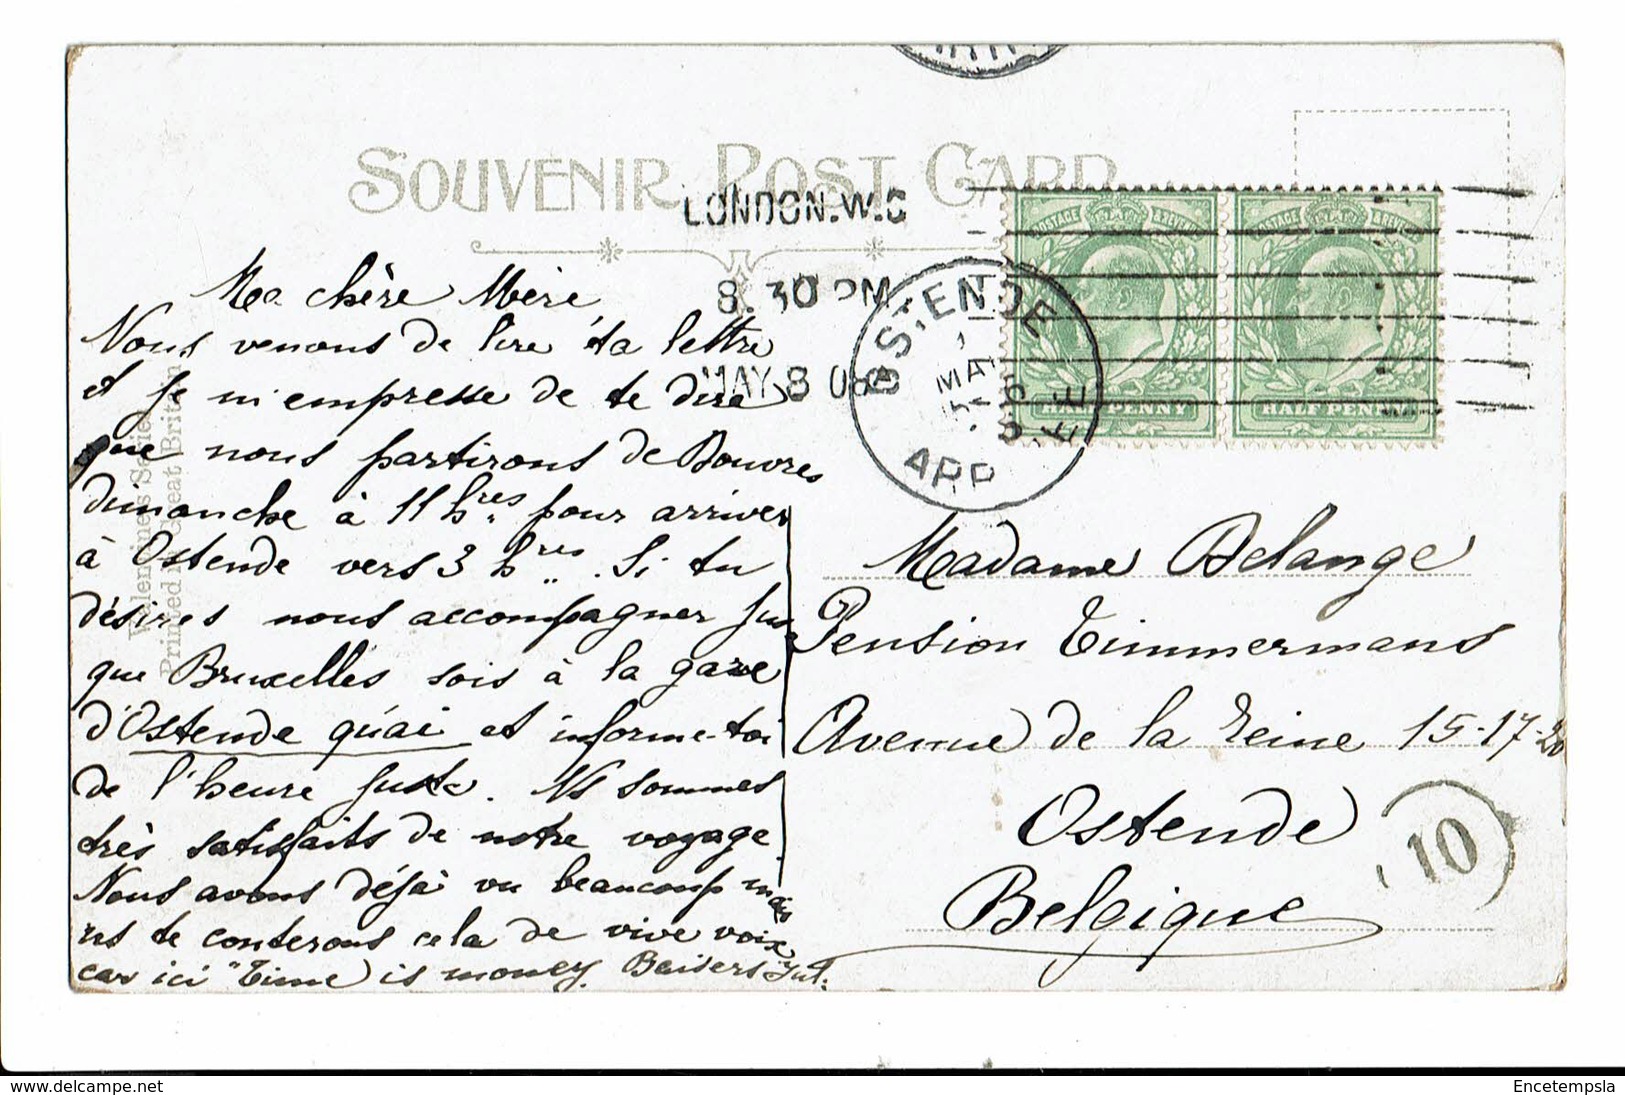 SOUVENIR POST CARD
LONDON.W.C
8.30 PM
MAY 8 08
OSTENDE
MAI
ARR
POSTAGE & REVENUE
HALF PENNY
POSTAGE & REVENUE
HALF PENNY
Valentines Series
Printed in Great Britain
Ma chère Mère,
Nous venons de lire ta lettre
et je m'empresse de te dire
que nous partirons de Douvres
dimanche à 11 hres pour arriver
à Ostende vers 3 hres. Si tu
désires nous accompagner jus
que Bruxelles sois à la gare
d'Ostende quai et informe-toi
de l'heure juste. Ns sommes
très satisfaits de notre voyage.
Nous avons déjà vu beaucoup mais
ns te conterons cela de vive voix
car ici "Time is money. Baisers
Madame Delange
Pension Timmermans
Avenue de la Reine 15-17-20
Ostende
Belgique
10
delcampe.net
Encetempsla